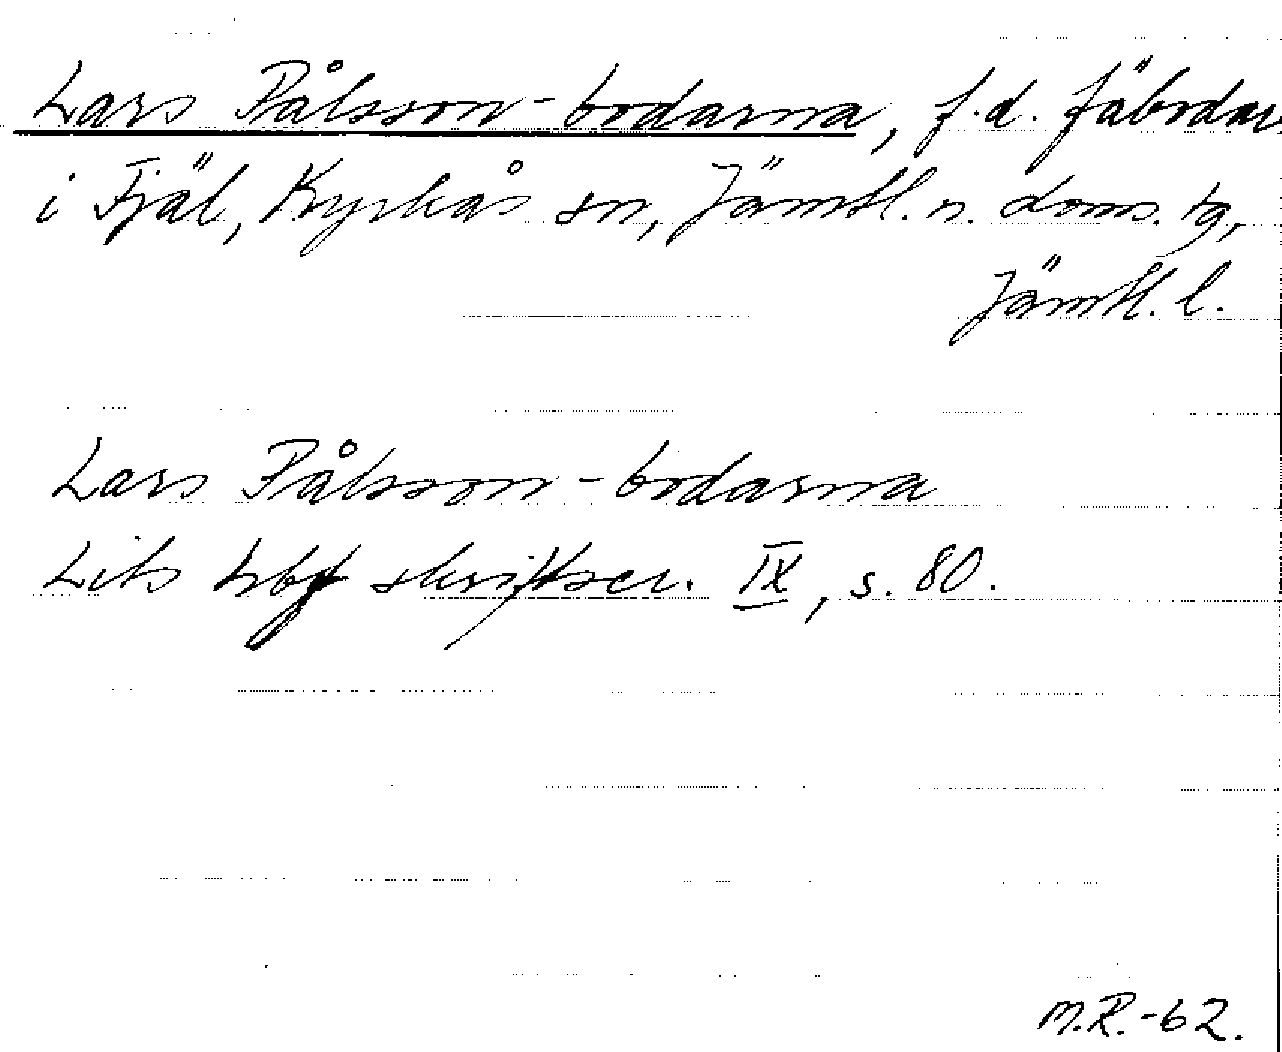 Lars Pålsson-bodarna, f.d. fäbodar
i Fjäl, Kyrkås sn, Jämtl. n. doms. tg,
Jämtl. l.
Lars Pålsson-bodarna
Lits hbf skriftser. IX, s. 80.
M.R.-62.